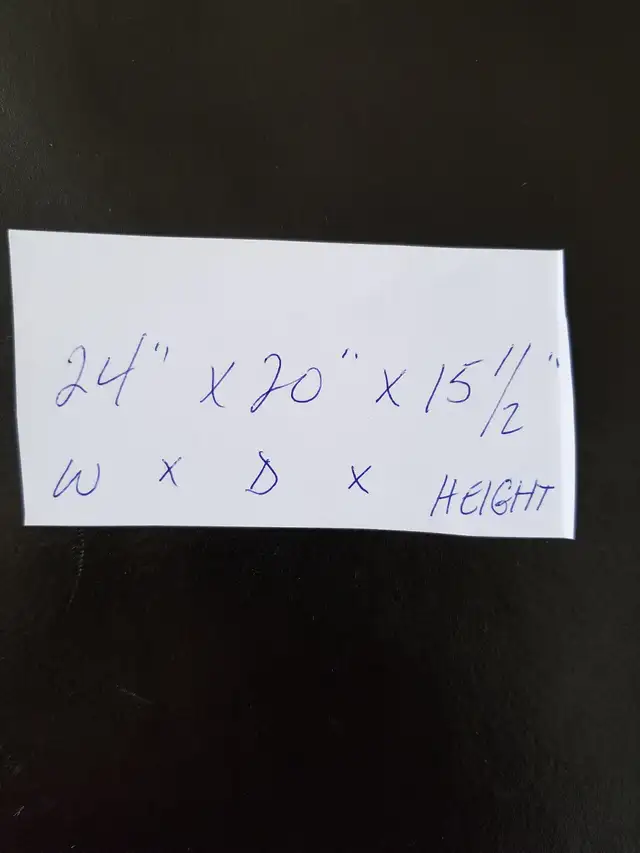 24" X 20" X 15 1/2"
W X D X HEIGHT